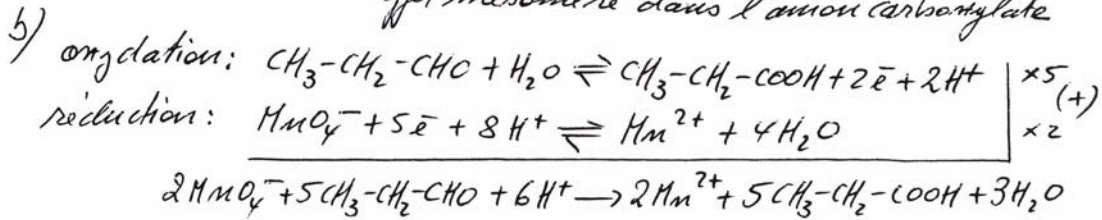 mésomère dans l'anion carboxylate
b) oxydation: CH₃-CH₂-CHO + H₂O ⇌ CH₃-CH₂-COOH + 2ē + 2H⁺ | ×5 (+)
réduction: MnO₄⁻ + 5ē + 8H⁺ ⇌ Mn²⁺ + 4H₂O | ×2
2MnO₄⁻ + 5CH₃-CH₂-CHO + 6H⁺ → 2Mn²⁺ + 5CH₃-CH₂-COOH + 3H₂O